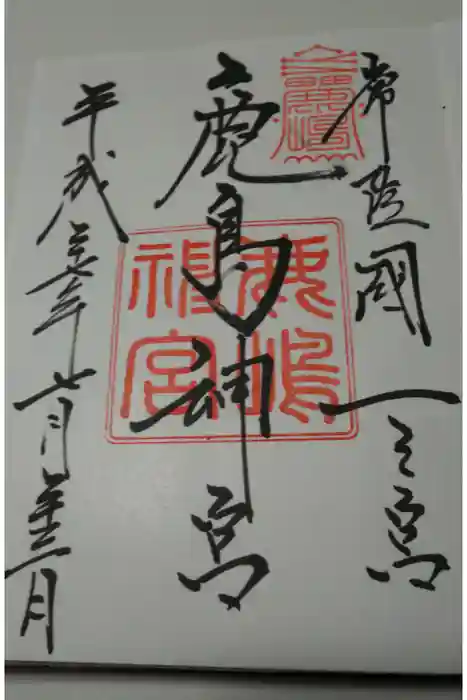 常陸國一之宮
鹿島神宮
平成二十七年七月二十三日
鹿嶋神宮